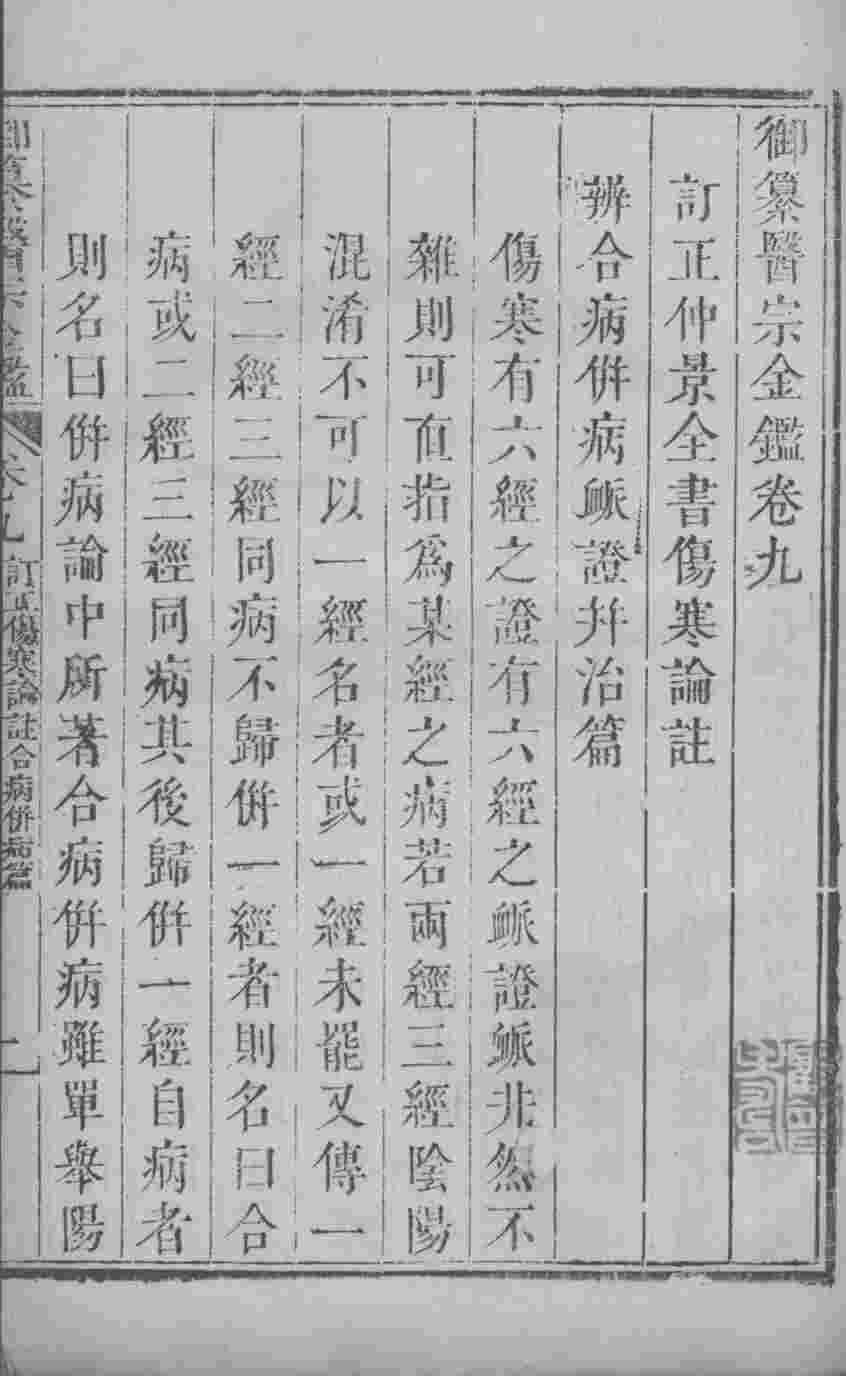 御纂醫宗金鑑卷九
訂正仲景全書傷寒論註
辨合病併病䘑證幷治篇
傷寒有六經之證有六經之䘑證䘑井然不
雜則可直指爲某經之病若兩經三經陰陽
混淆不可以一經名者或一經未罷又傳一
經二經三經同病不歸併一經者則名曰合
病或二經三經同病其後歸併一經自病者
則名曰併病論中所著合病併病雖單舉陽
御纂醫宗金鑑 卷九 訂正傷寒論註合病併病篇 一